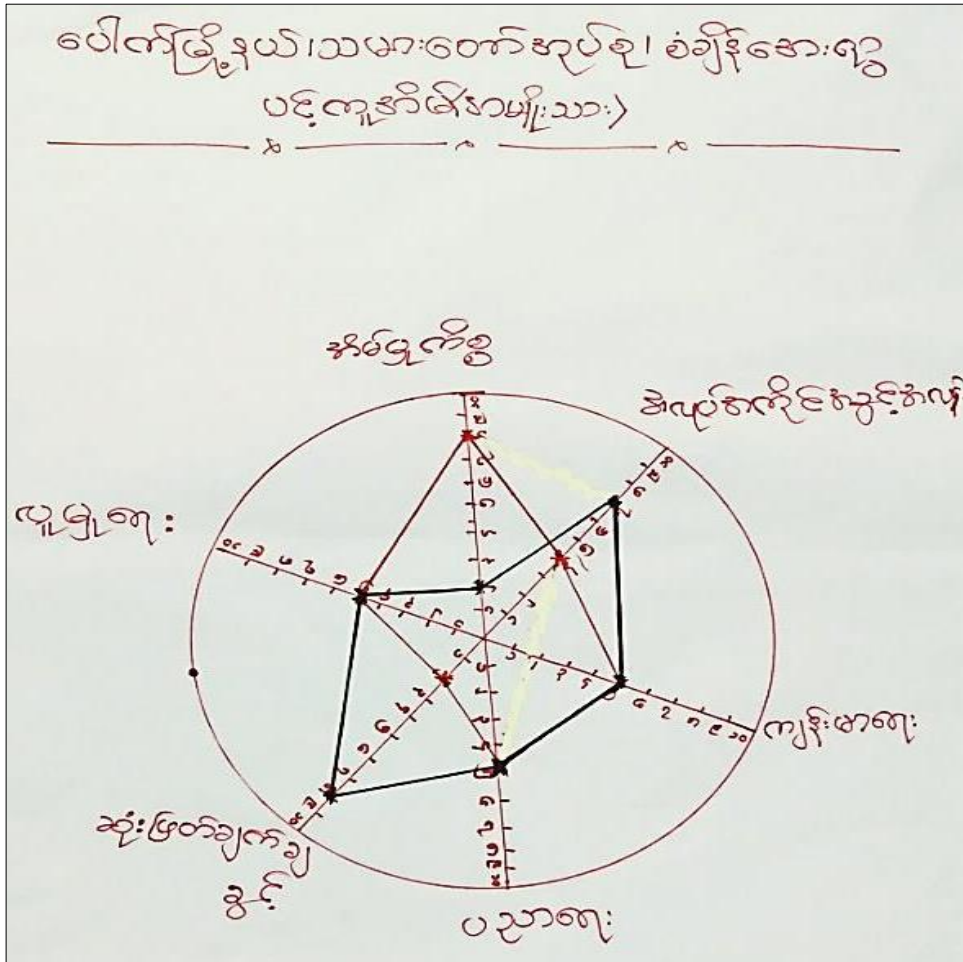 ပေါက်မြို့နယ်၊သမားတော်အုပ်စု၊ စံချိန်အေးရွာ
ပင့်ကူအိမ်(အမျိုးသား)
အိမ်မှုကိစ္စ
အလုပ်အကိုင်အခွင့်အလမ်း
လူမှုရေး
ကျန်းမာရေး
ဆုံးဖြတ်ချက်ချ
ခွင့်
ပညာရေး